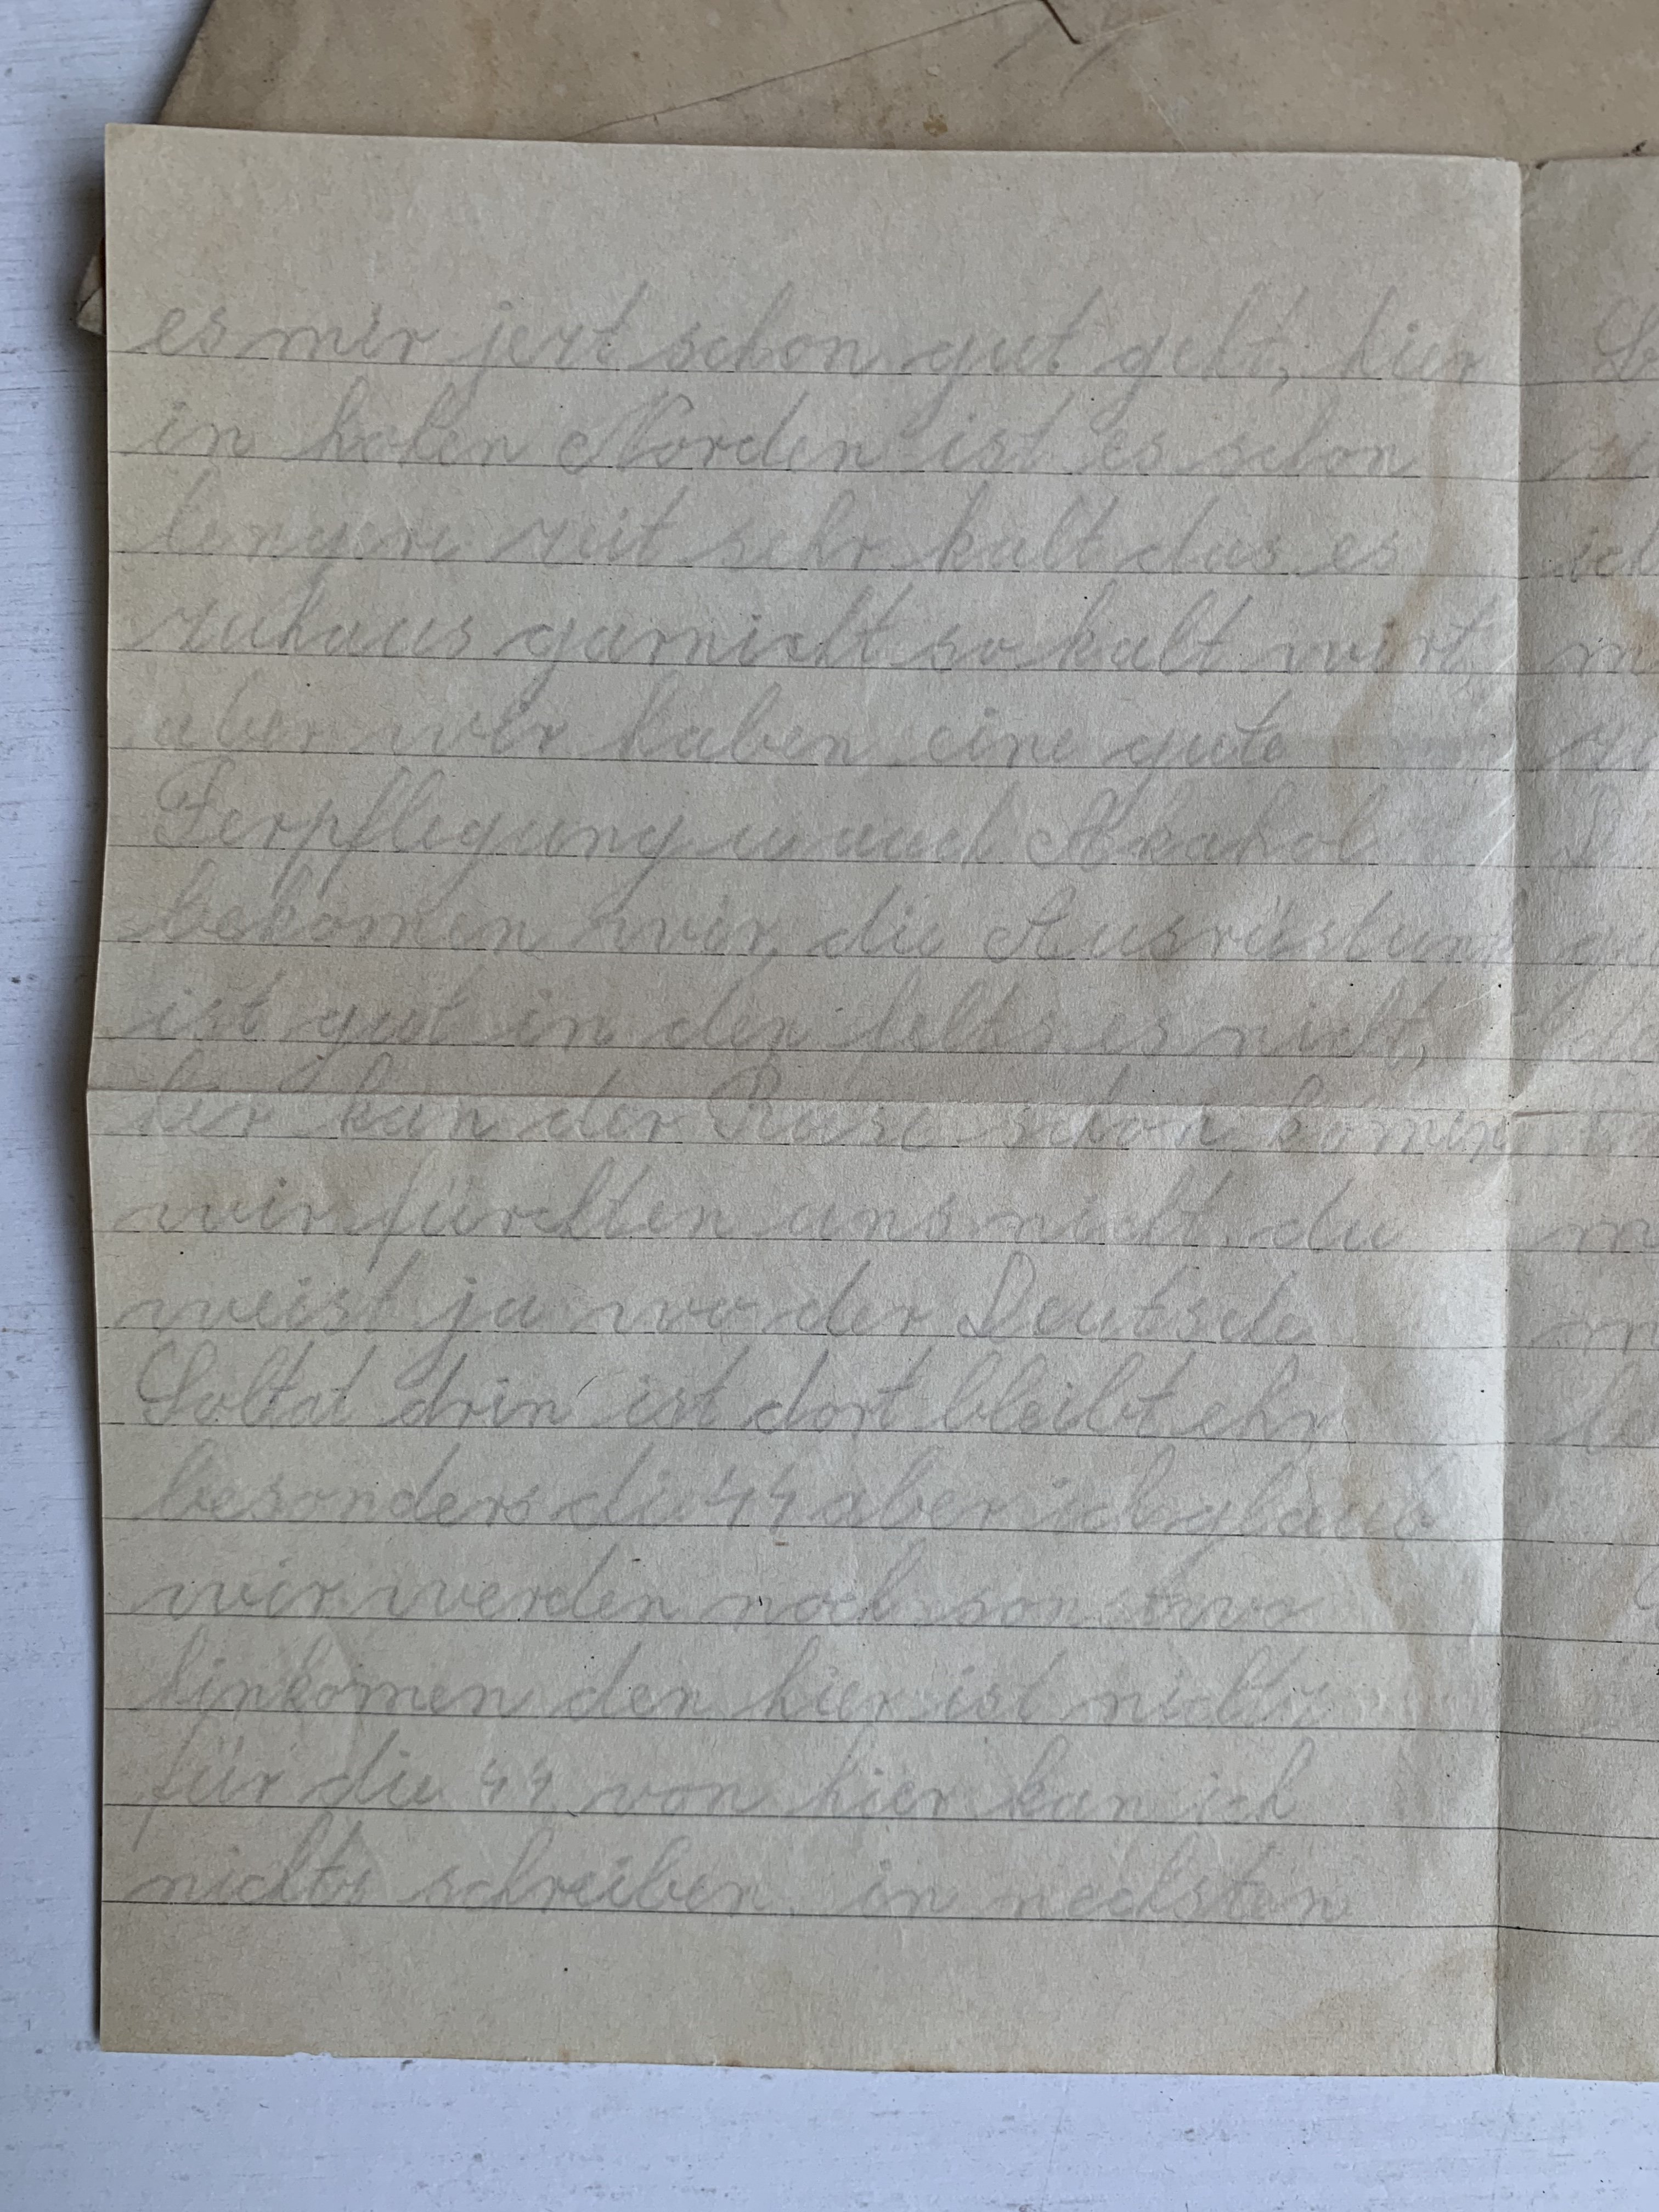 es mir jezt schon gut geht, hier
in hohen Norden ist es schon
lengere zeit sehr kalt das es
zuhaus garnicht so kalt wirt,
aber wir haben eine gute
Ferpflegung u auch Alkahol
bekomen wir, die Ausrüstung
ist gut in den felts es nicht,
hir kan der Ruse schon komen
wir fürchten uns nicht, du
weist ja wo der Deutsche
Soltat drin ist dort bleibt ehr
besonders die ᛋᛋ aber ich glaub
wir werden noch sonstwo
hinkomen den hier ist nichts
für die ᛋᛋ, von hier kan ich
nichts schreiben, in nechsten